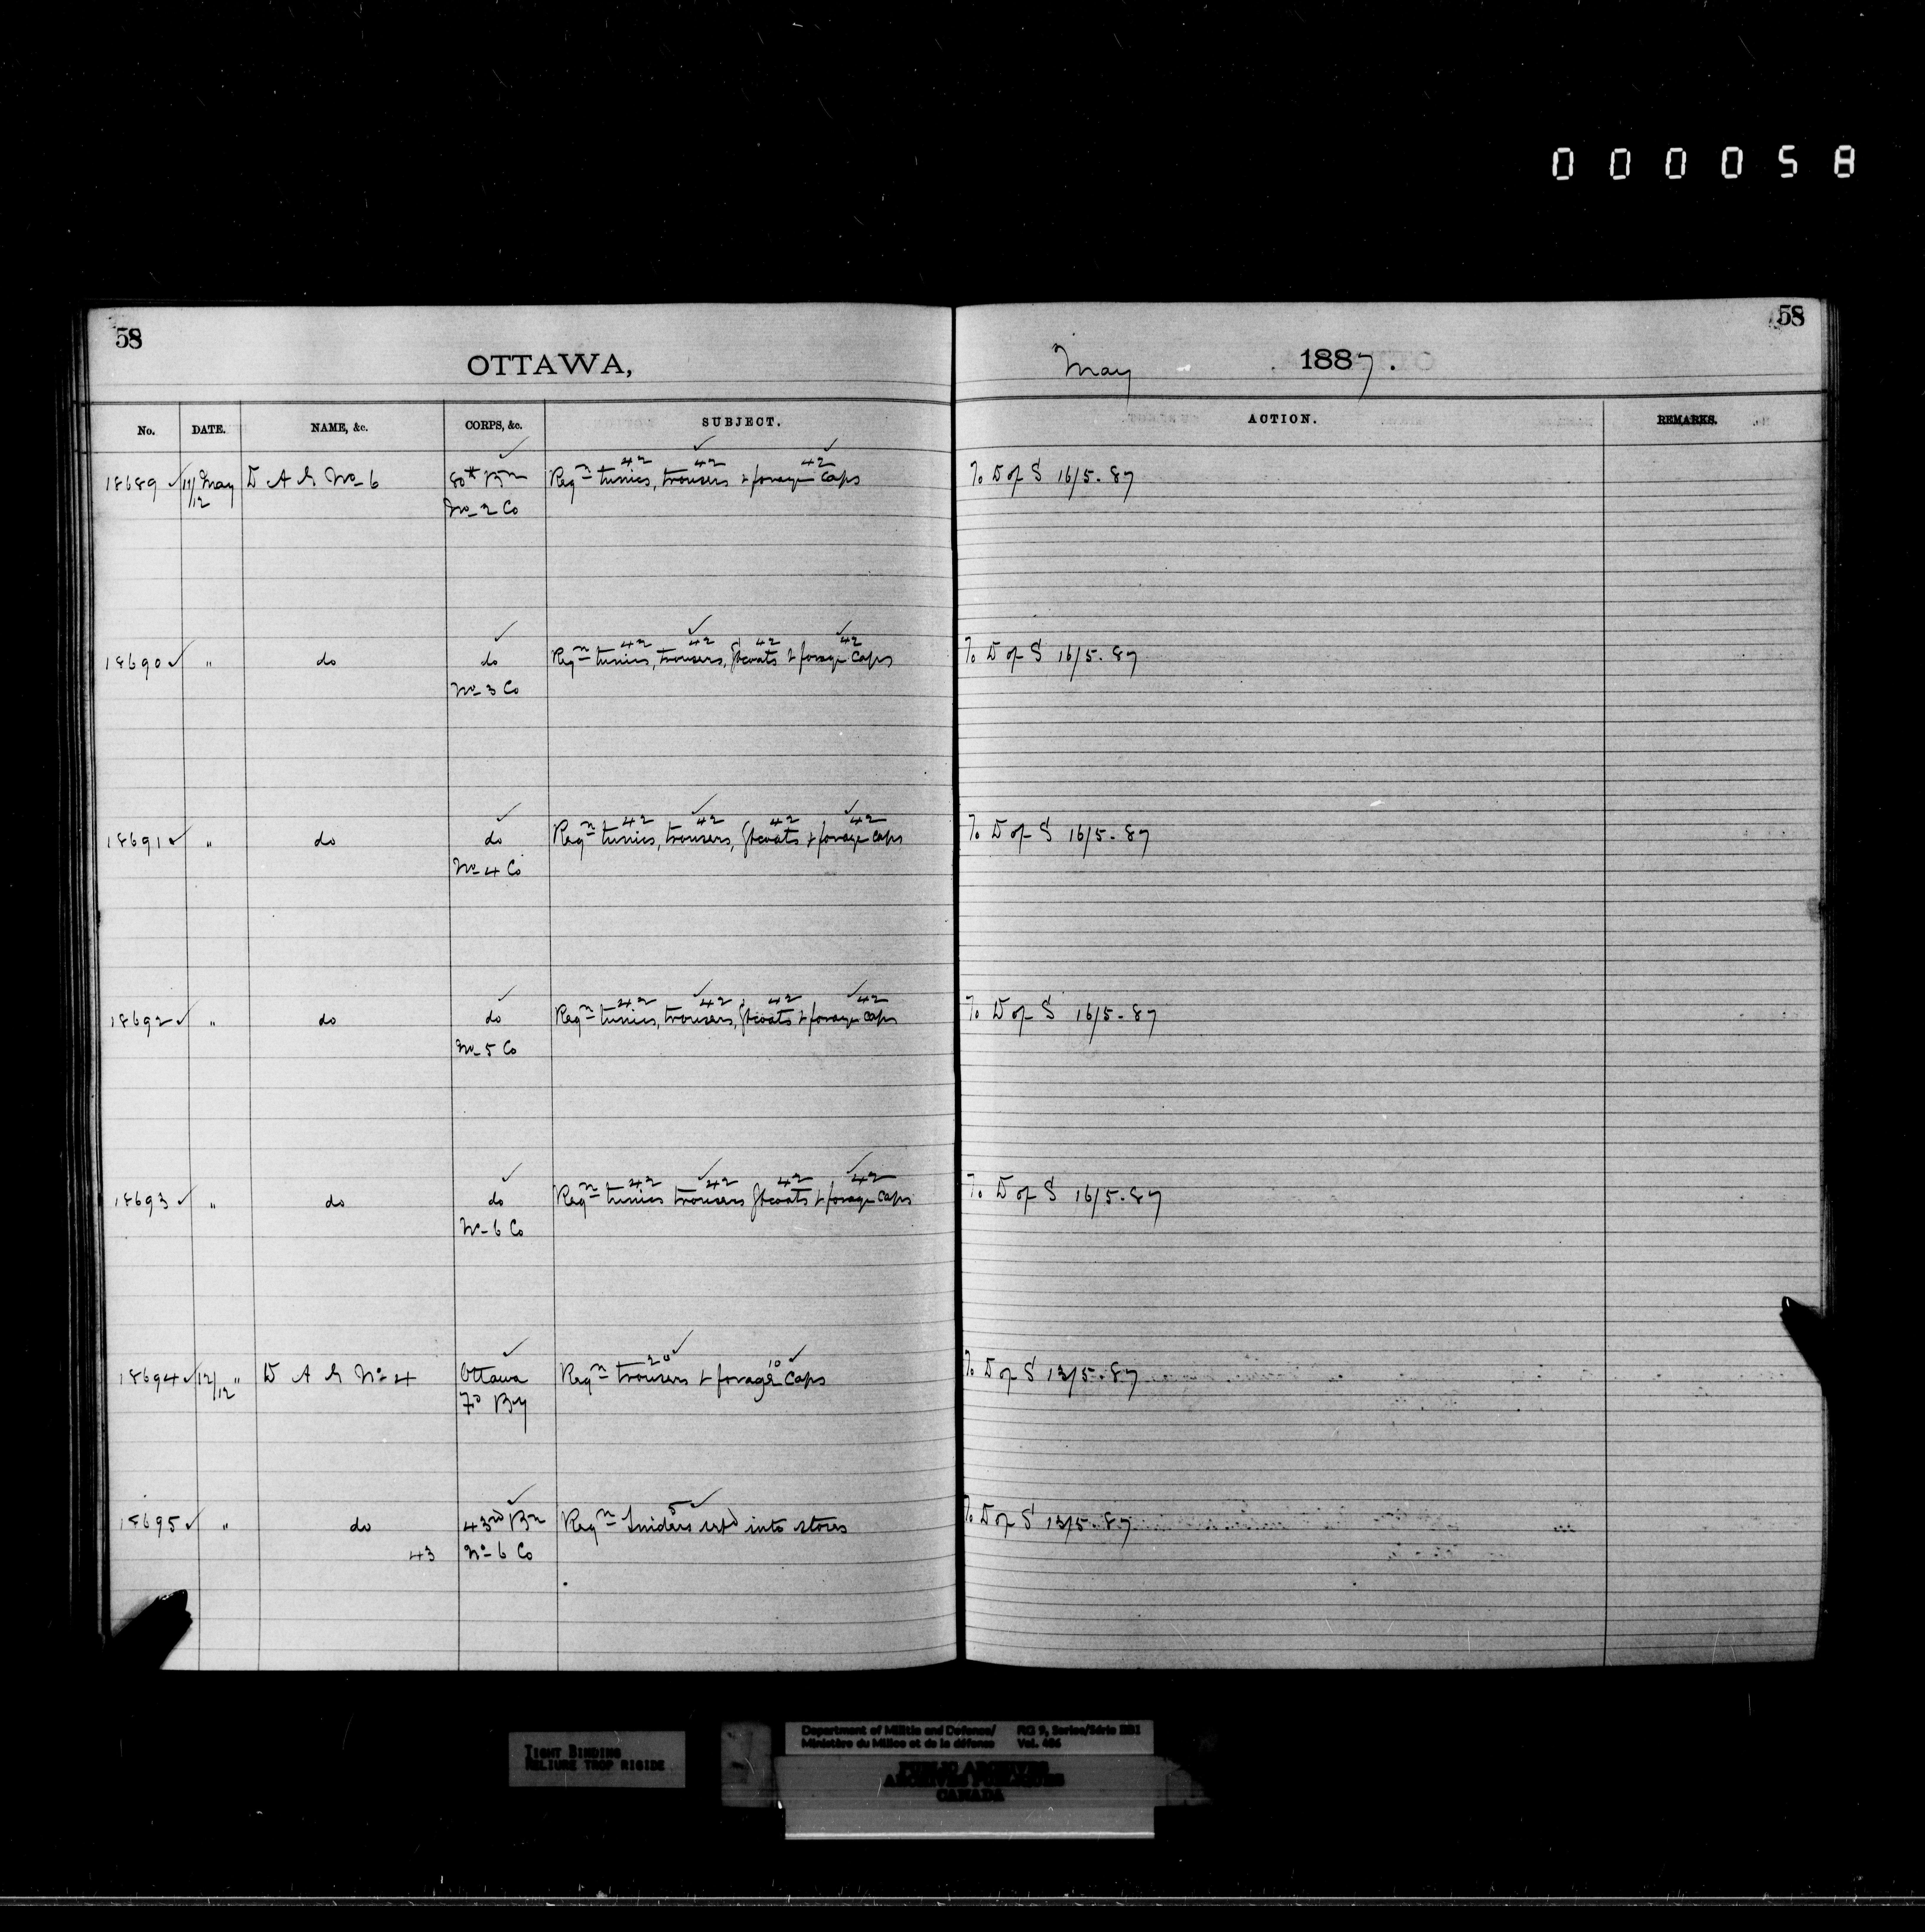 000058
58
58
OTTAWA,
May 1887.
No. DATE. NAME, &c. CORPS, &c. SUBJECT. ACTION. REMARKS.
42 42 42
18689 11/12 May D A G No 6 80th Bn Reqn tunics, trousers & forage caps To D of S 16/5-87
No 2 Co
42 42 42 42
18690 " do do Reqn tunics, trousers, Gtcoats & forage caps To D of S 16/5-87
No 3 Co
42 42 42 42
18691 " do do Reqn tunics, trousers, Gtcoats & forage caps To D of S 16/5-87
No 4 Co
42 42 42 42
18692 " do do Reqn tunics, trousers, Gtcoats & forage caps To D of S 16/5-87
No 5 Co
42 42 42 42
18693 " do do Reqn tunics trousers Gtcoats & forage caps To D of S 16/5-87
No 6 Co
20 10
18694 12/12 " D A G No 4 Ottawa Reqn trousers & forage caps To D of S 13/5-87
Fd By
5
18695 " do 43rd Bn Reqn Sniders into stores To D of S 13/5-87
43 No 6 Co
TIGHT BINDING
RELIURE TROP RIGIDE
Department of Militia and Defence/ RG 9, Series/Série IIB1
Ministère du Milice et de la défense Vol. 406
PUBLIC ARCHIVES
ARCHIVES PUBLIQUES
CANADA